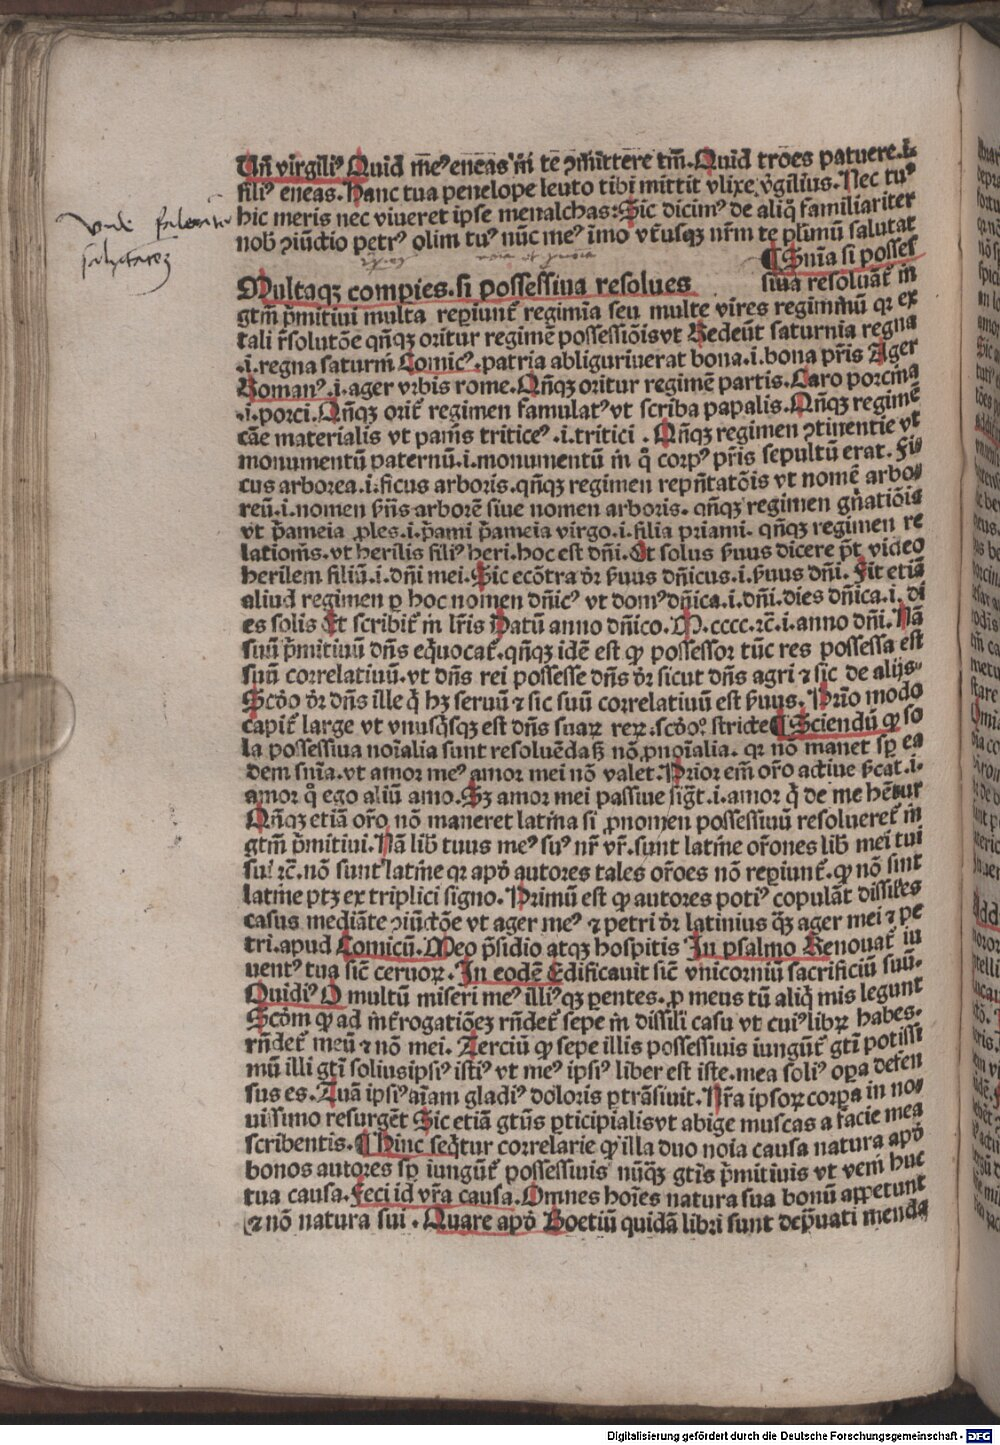 Vñ virgiliꝰ Quid meꝰ eneas m̄ te ꝯmittere tm̄. Quid troes patuere.i.
filiꝰ eneas. Hanc tua penelope lento tibi mittit vlixe. v̓gilius. Nec tuꝰ
hic meris nec viueret ipse menalchas: Sic dicimꝰ de aliq̄ familiariter
nob̄ ꝯiūctio petrꝰ olim tuꝰ nūc meꝰ īmo vtꝛ̄usqꝫ nr̄m te plimū salutat
¶ Snīa si posses
Multaqꝫ compies. si possessiua resolues
siua resoluāt in
gtm̄ p̄mitiui multa repiunt̄ regimīa seu multe vires regiminū qꝛ ex
tali r̄solutōe qn̄qꝫ oritur regimē possessiōis vt Redeūt saturnia regna
.i. regna saturni Comicꝰ. patria abliguriuerat bona .i. bona pr̄is Ager
Romanꝰ .i. ager vrbis rome. Qn̄qꝫ oritur regimē partis. Caro porcina
.i. porci. Qn̄qꝫ orit̄ regimen famulatꝰ vt scriba papalis. Qn̄qꝫ regimē
cāe materialis vt panis triticeꝰ .i. tritici . Qn̄qꝫ regimen ꝯtinentie vt
monumentū paternū .i. monumentū in q̊ corpꝰ pr̄is sepultū erat. Fi
cus arborea .i. ficus arboris. qn̄qꝫ regimen repn̄tatōis vt nomē arbo
reū .i. nomen ſ̄ns arborē siue nomen arboris. qn̄qꝫ regimen gn̄atiōis
vt p̄ameia ꝓles .i. p̄ami p̄ameia virgo .i. filia priami. qn̄qꝫ regimen re
lationis. vt herilis filiꝰ heri. hoc est dn̄i. Et solus ſuus dicere pt̄ video
herilem filiū .i. dn̄i mei. Sic ecōtra dr̄ ſuus dn̄icus .i. ſuus dn̄i. Fit etiā
aliud regimen ꝑ hoc nomen dn̄icꝰ vt domꝰ dn̄ica .i. dn̄i. dies dn̄ica .i. di
es solis Et scribit̄ in lr̄is Datū anno dn̄ico. M.cccc.ꝛc̄ .i. anno dn̄i. Nā
suū p̄mitiuū dn̄s eq̄uocat̄. qn̄qꝫ idē est qꝙ possessor tūc res possessa est
suū correlatiuū. vt dn̄s rei possesse dn̄s dr̄ sicut dn̄s agri ⁊ sic de alijs.
Scd̓o dr̄ dn̄s ille q̄ hꝫ seruū ⁊ sic suū correlatiuū est ſuus. Prīo modo
capit̄ large vt vnusq̄sqꝫ est dn̄s suaꝝ reꝝ. scd̓o stricte ¶ Sciendū ꝙ so
la possessiua noīalia sunt resoluēda sꝫ nō ꝓnoīalia. qꝛ nō manet sꝑ ea
dem snīa. vt amor meꝰ amor mei nō valet. Prior em̄ or̄o actiue ſcat .i.
amor q̊ ego aliū amo. Sꝫ amor mei passiue sig̅t .i. amor q̄ de me hētur
Qn̄qꝫ etiā or̄o nō maneret latina si ꝓnomen possessiuū resolueret̄ in
gtm̄ p̄mitiui. Nā lib̄ tuus meꝰ suꝰ nr̄ vr̄. sunt latine or̄ones lib̄ mei tui
sui ꝛc̄. nō sunt latine qꝛ apd̓ autores tales or̄oes nō repiunt̄. ꝙ nō sint
latine ptꝫ ex triplici signo. Primū est ꝙ autores potiꝰ copulāt dissiles
casus mediāte ꝯiūctōe vt ager meꝰ ⁊ petri dr̄ latinius q̄ꝫ ager mei ⁊ pe
tri. apud Comicū. Meo p̄sidio atqꝫ hospitis In psalmo Renouat̄ iu
uentꝰ tua sic̄ ceruoꝝ. In eodē Edificauit sic̄ vnicorniū sacrificiū suū.
Ouidiꝰ O multū miseri meꝰ illiꝰqꝫ ꝑentes. ꝓ meus tū aliq̄ mis legunt
Scd̓m ꝙ ad int̄rogatiōeꝫ rn̄det̄ sepe in dissili casu vt cuiꝰ libꝝ habes.
rn̄det̄ meū ⁊ nō mei. Terciū ꝙ sepe illis possessiuis iungūt̄ gtī potissi
mū illi gtī solius ipsiꝰ istiꝰ vt meꝰ ipsiꝰ liber est iste. mea soliꝰ oꝑa defen
sus es. Tuā ipsiꝰ aīam gladiꝰ doloris ꝑtrāsiuit. Nr̄a ipsoꝝ corꝑa in no
uissimo resurgēt Sic etiā gtūs ꝑticipialis vt abige muscas a facie mea
scribentis. ¶ Hinc seq̄tur correlarie ꝙ illa duo noīa causa natura apd̓
bonos autores sꝑ iungūt̄ possessiuis nūq̄ꝫ gtīs p̄mitiuis vt veni huc
tua causa. Feci id vr̄a causa. Omnes hoīes natura sua bonū appetunt
⁊ nō natura sui . Quare apd̓ Boetiū quidā libri sunt dep̄uati menda
Digitalisierung gefördert durch die Deutsche Forschungsgemeinschaft - DFG